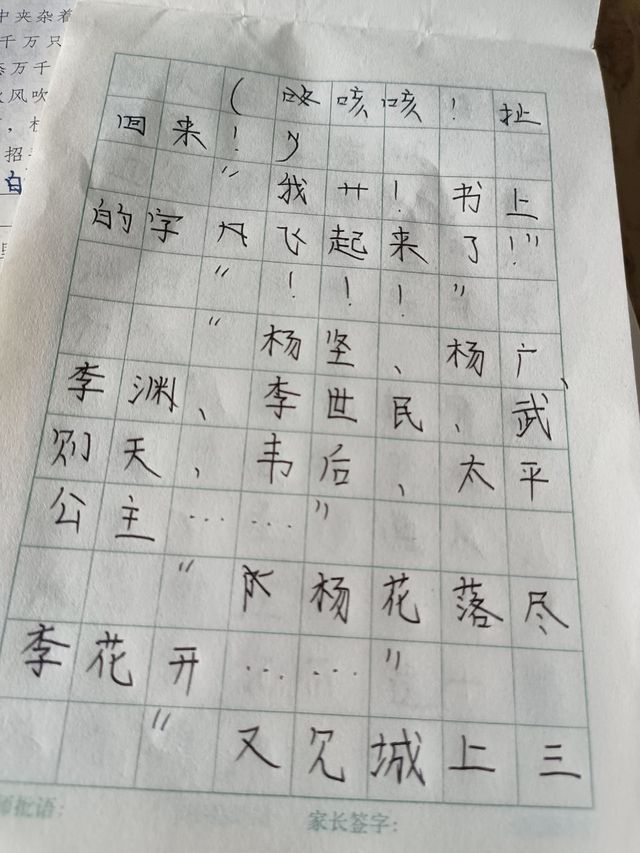 中夹杂着
千万只
态万千
风吹
招
白
(咳咳咳！扯
回来！)
"我艹！书上
的字飞起来了！"
"！！！"
"杨坚、杨广、
李渊、李世民、武
则天、韦后、太平
公主……"
"杨花落尽
李花开……"
"又见城上三
师批语：
家长签字：